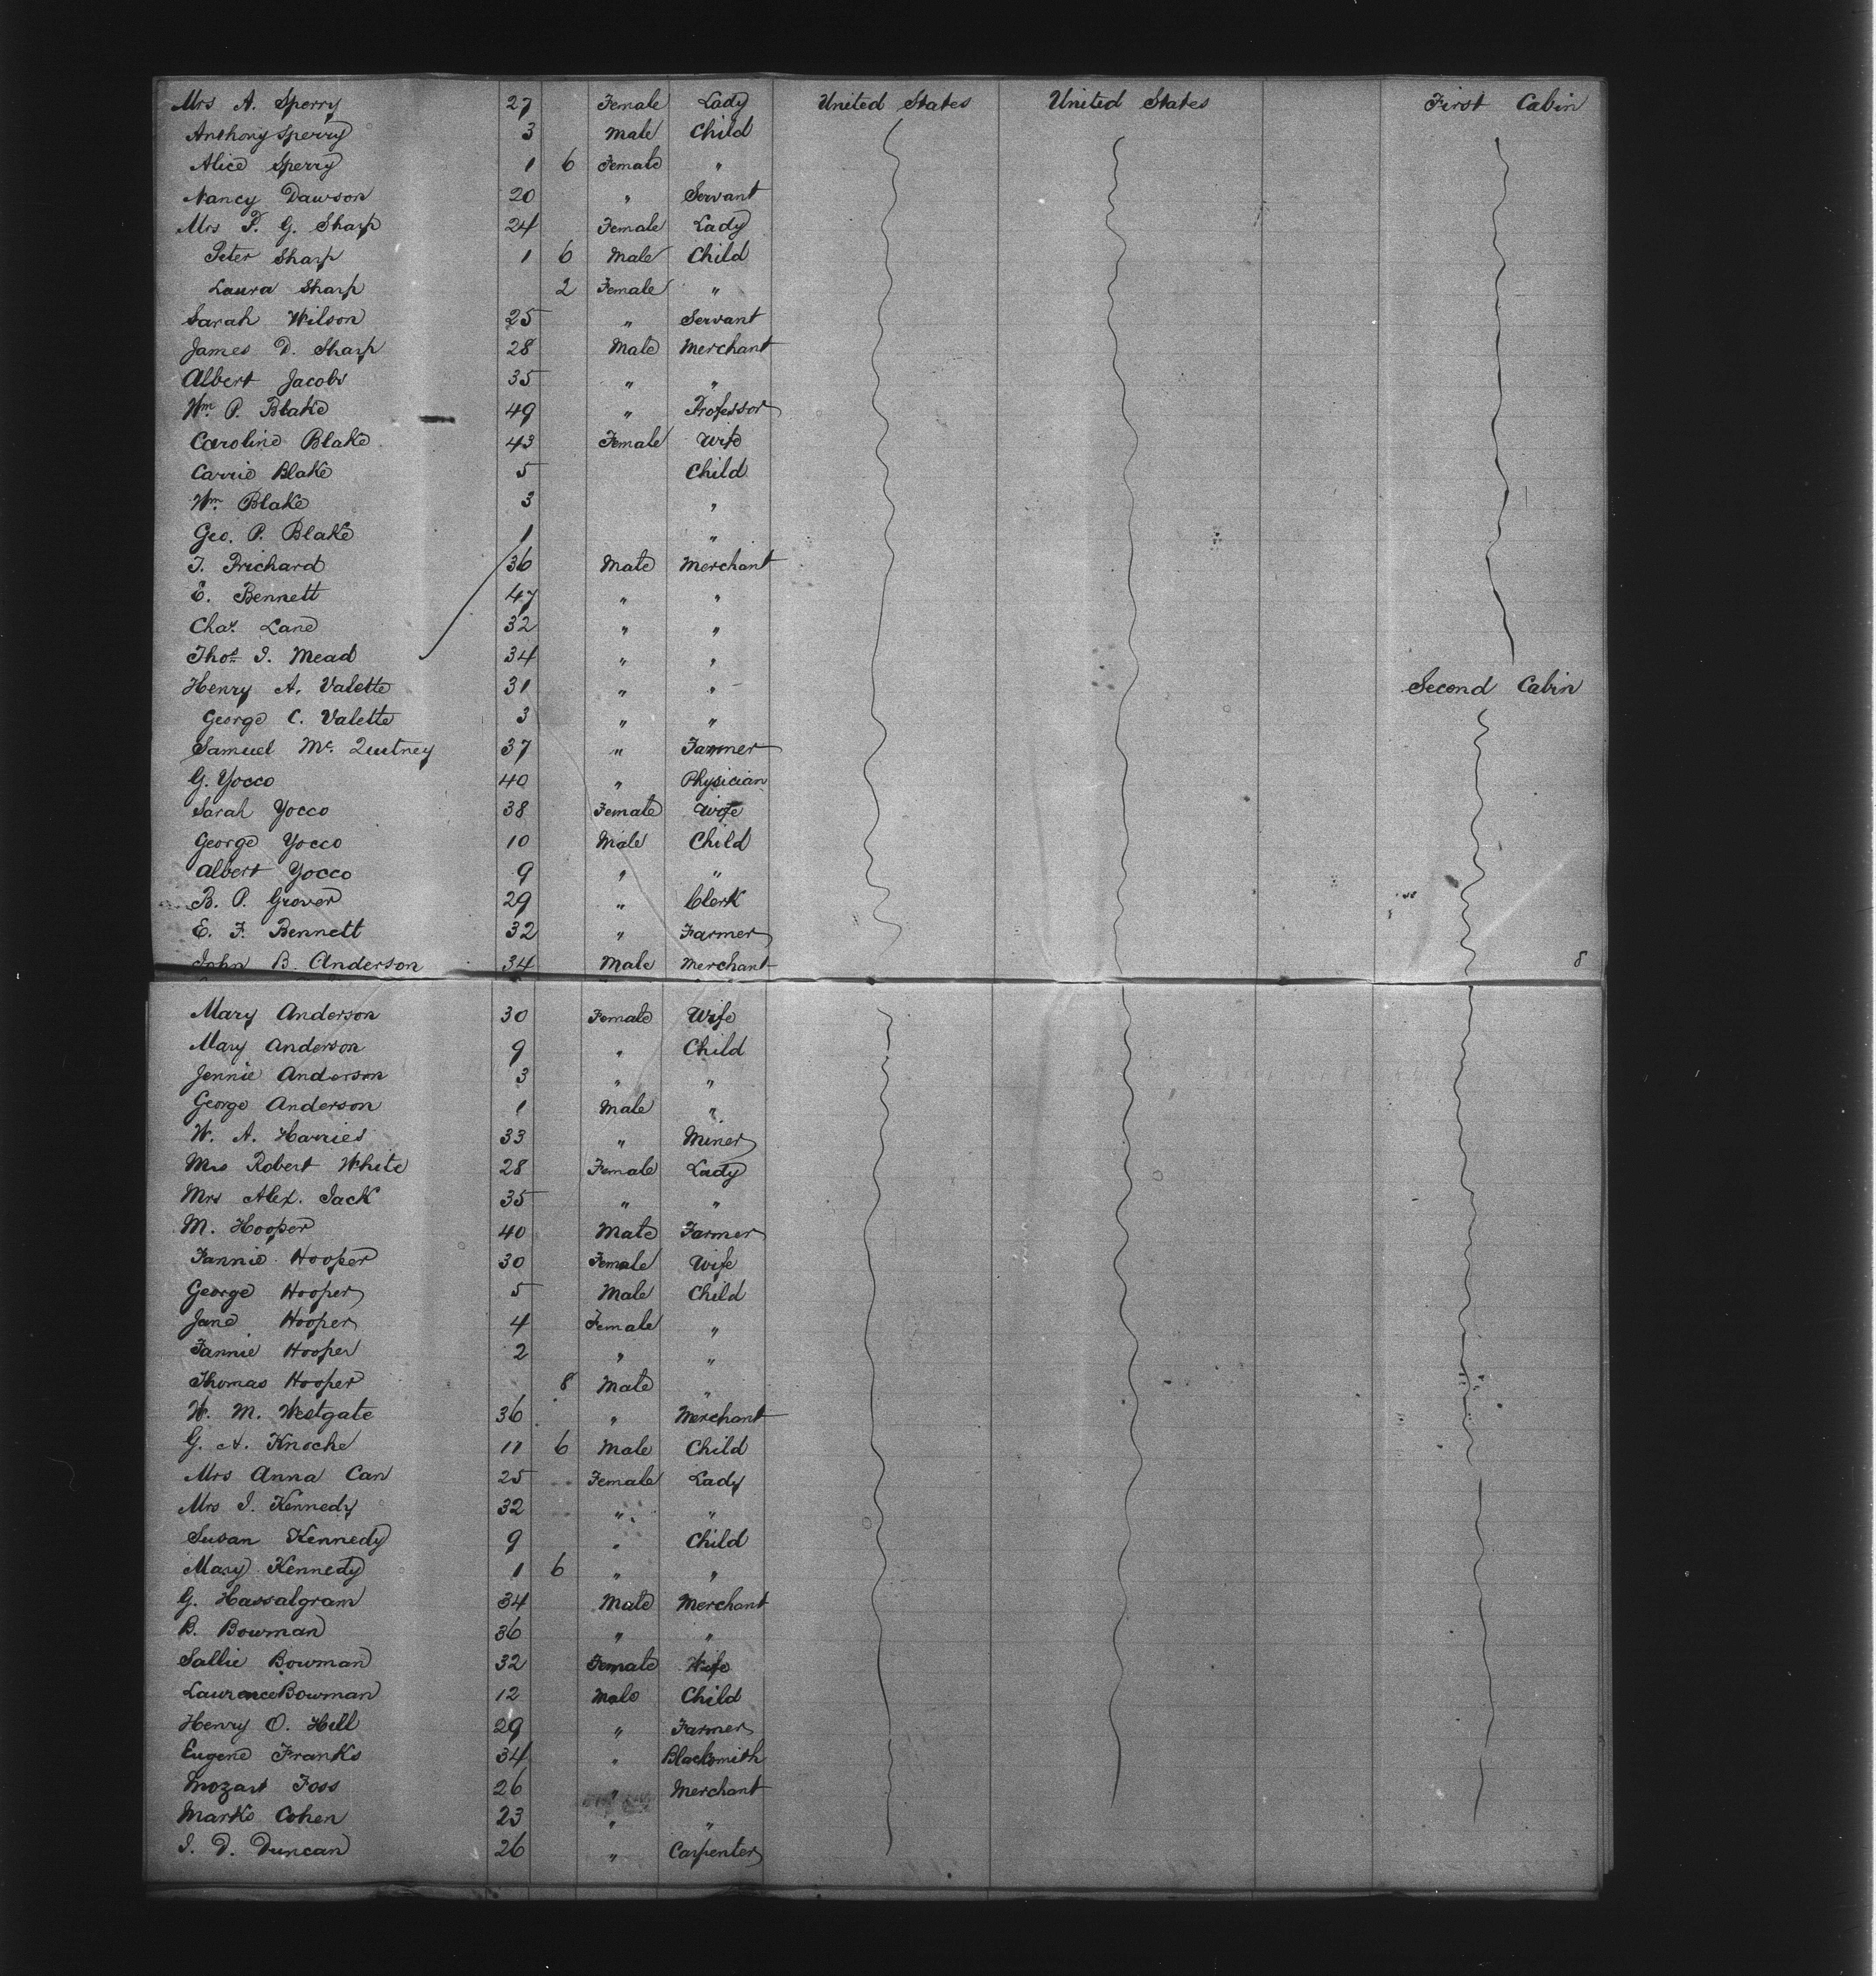 Mrs A. Sperry 27 Female Lady United States United States First Cabin
Anthony Sperry 3 Male Child
Alice Sperry 1 6 Female "
Nancy Dawson 20 " Servant
Mrs F. G. Sharp 24 Female Lady
Peter Sharp 1 6 Male Child
Laura Sharp 2 Female "
Sarah Wilson 25 " Servant
James D. Sharp 28 Male Merchant
Albert Jacobs 35 " "
Wm. P. Blake 49 " Professor
Caroline Blake 43 Female Wife
Carrie Blake 5 Child
Wm. Blake 3 "
Geo. P. Blake 1 "
T. Prichard 36 Male Merchant
E. Bennett 47 " "
Chas. Lane 32 " "
Thos. I. Mead 34 " "
Henry A. Valette 31 " " Second Cabin
George C. Valette 3 " "
Samuel Mc. Quitney 37 " Farmer
G. Yocco 40 " Physician
Sarah Yocco 38 Female Wife
George Yocco 10 Male Child
Albert Yocco 9 " "
B. P. Grover 29 " Clerk
E. F. Bennett 32 " Farmer
John B. Anderson 34 Male Merchant 8
Mary Anderson 30 Female Wife
Mary Anderson 9 " Child
Jennie Anderson 3 " "
George Anderson 1 Male "
W. A. Harries 33 " Miner
Mrs Robert White 28 Female Lady
Mrs Alex. Jack 35 " "
M. Hooper 40 Male Farmer
Fannie Hooper 30 Female Wife
George Hooper 5 Male Child
Jane Hooper 4 Female "
Fannie Hooper 2 " "
Thomas Hooper 8 Male "
W. M. Westgate 36 " Merchant
G. A. Knoche 11 6 Male Child
Mrs Anna Can 25 Female Lady
Mrs I. Kennedy 32 " "
Susan Kennedy 9 " Child
Mary Kennedy 1 6 " "
G. Hassalgram 34 Male Merchant
B. Bowman 36 " "
Sallie Bowman 32 Female Wife
Laurence Bowman 12 Male Child
Henry O. Hill 29 " Farmer
Eugene Franks 34 " Blacksmith
Mozart Foss 26 " Merchant
Marks Cohen 23 " "
I. D. Duncan 26 " Carpenter